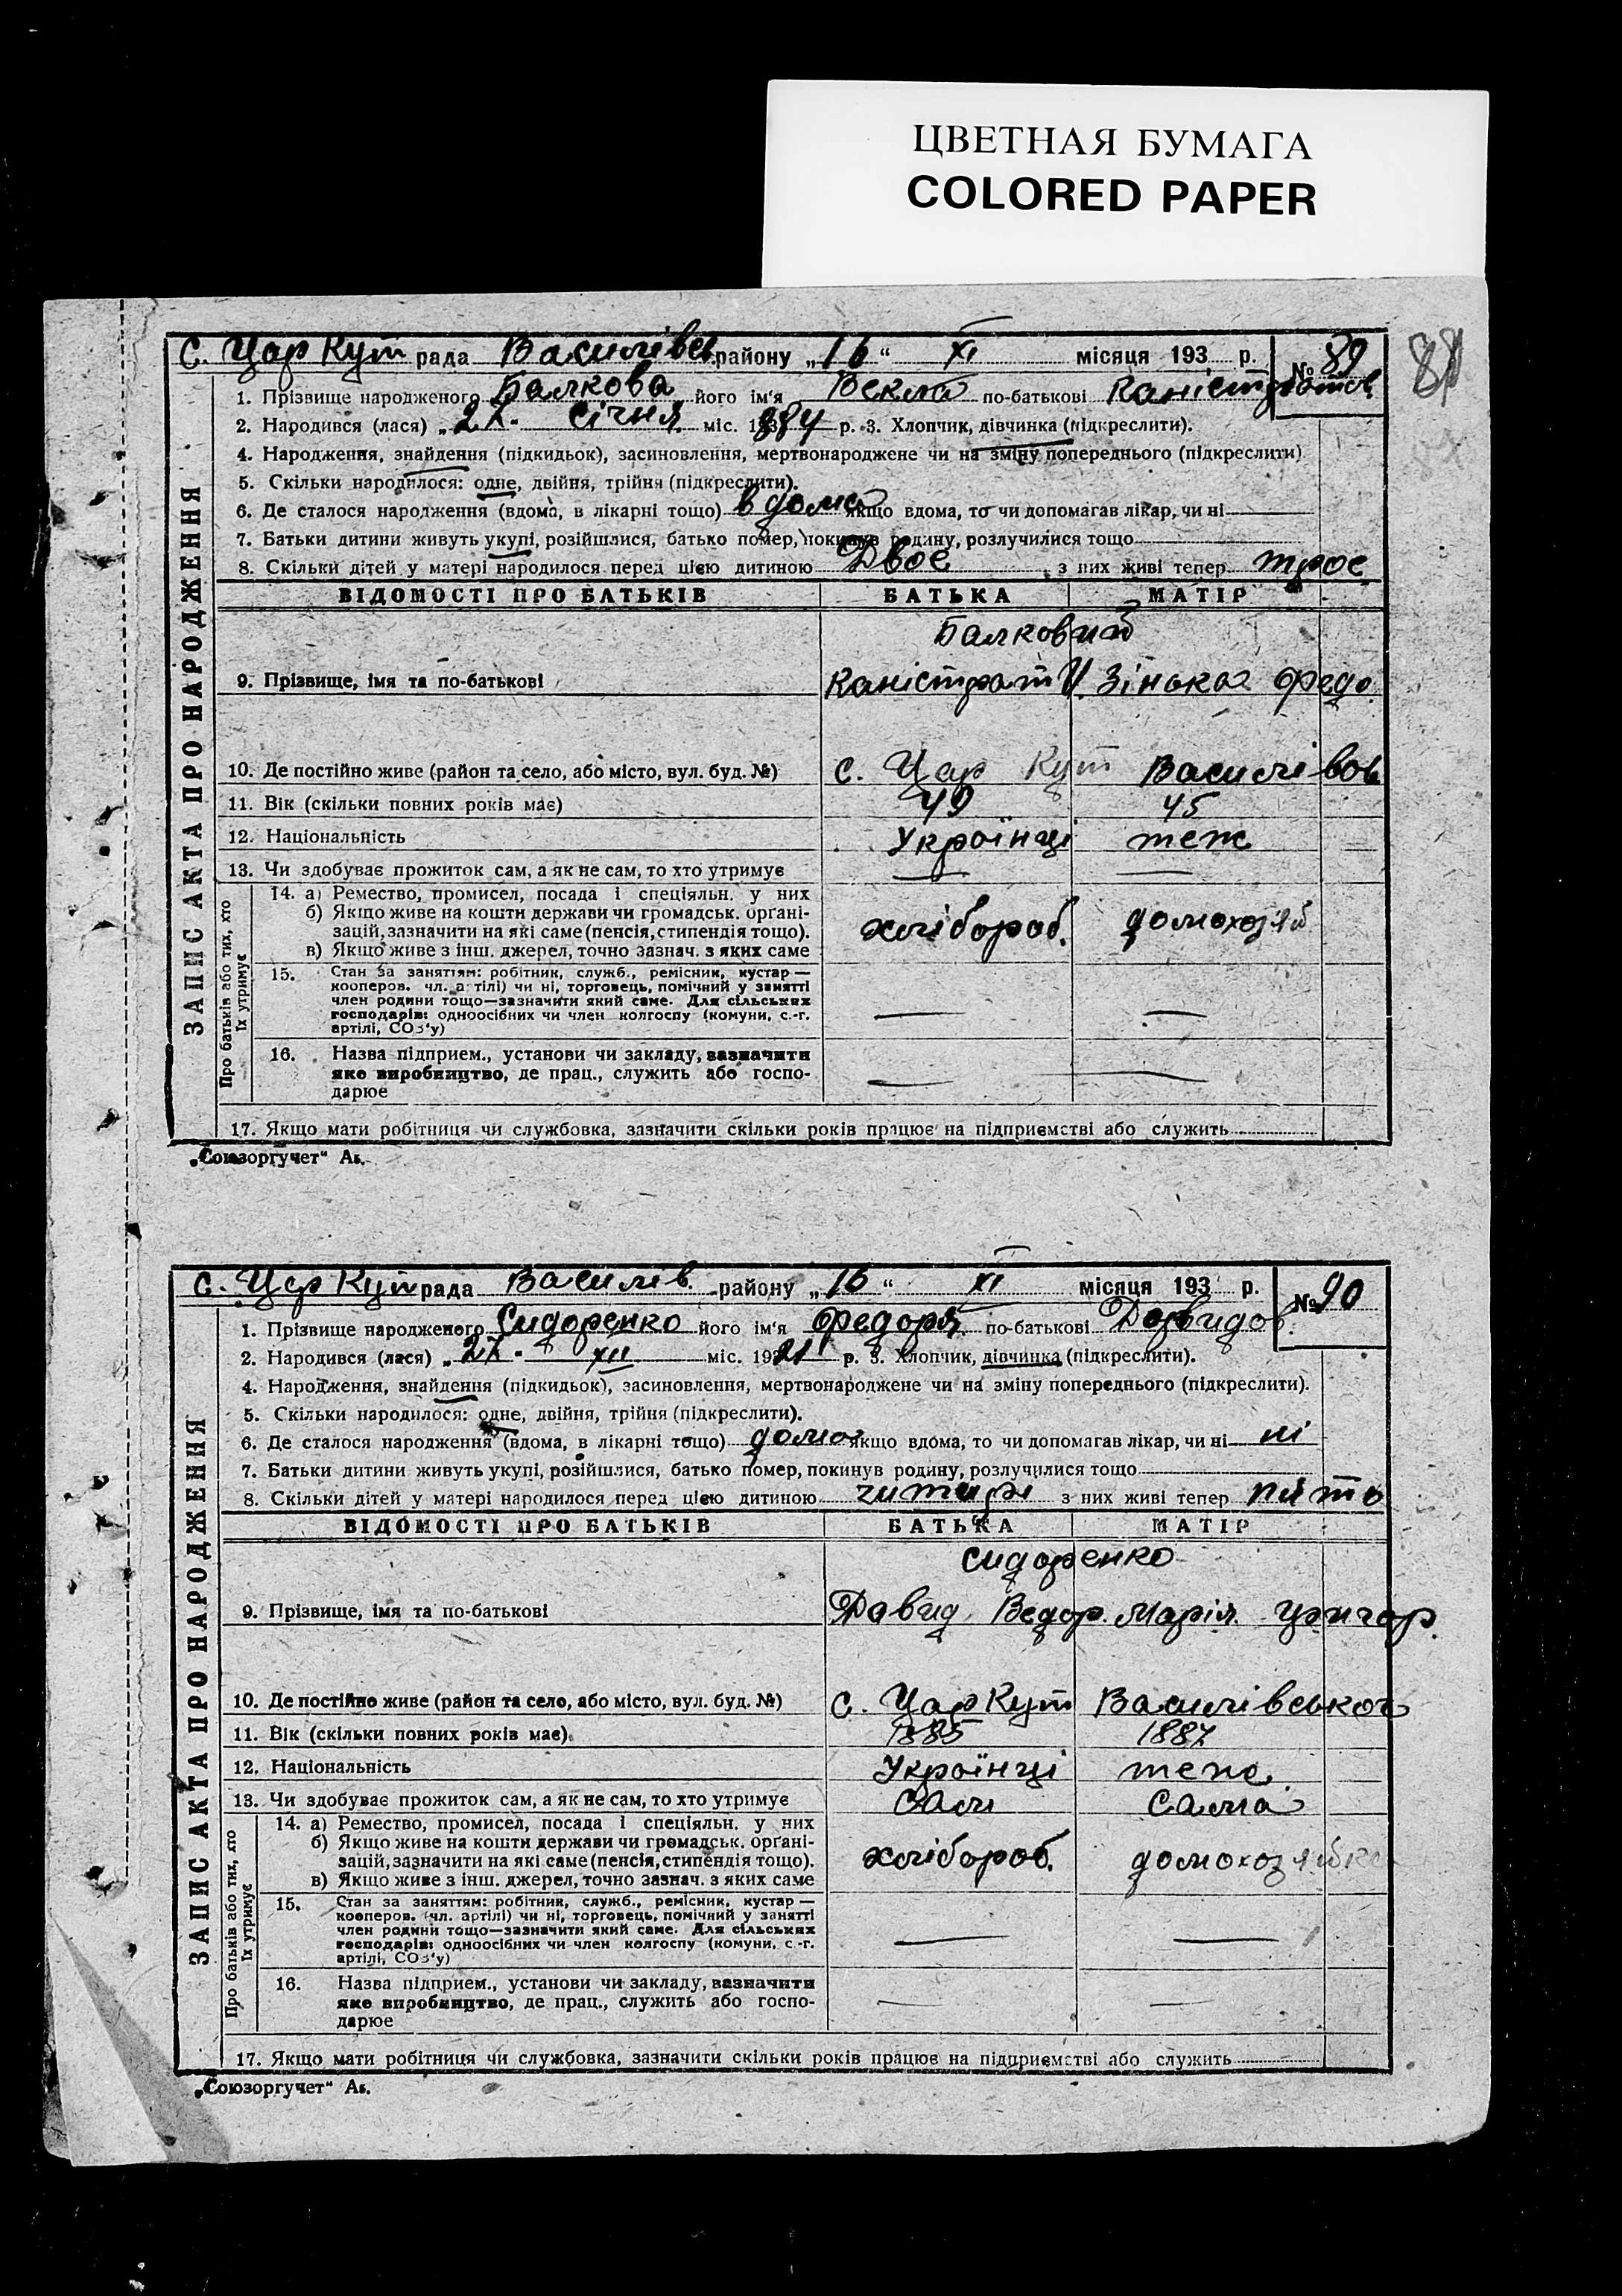 ЦВЕТНАЯ БУМАГА
COLORED PAPER
с. Цар Кут рада Василівсь району „16“ XI місяця 193 р.
№ 89
1. Прізвище народженого Балкова його ім'я Векла по-батькові Каністратов
2. Народився (лася) „27“ січня міс. 193 р. 3. Хлопчик, дівчинка (підкреслити).
4. Народження, знайдення (підкидьок), засиновлення, мертвонароджене чи на зміну попереднього (підкреслити)
5. Скільки народилося: одне, двійня, трійня (підкреслити).
6. Де сталося народження (вдома, в лікарні тощо) в дома якщо вдома, то чи допомагав лікар, чи ні
7. Батьки дитини живуть укупі, розійшлися, батько помер, покинув родину, розлучилися тощо
8. Скільки дітей у матері народилося перед цією дитиною Двоє з них живі тепер троє
ЗАПИС АКТА ПРО НАРОДЖЕННЯ
ВІДОМОСТІ ПРО БАТЬКІВ БАТЬКА МАТІР
Балковий
9. Прізвище, імя та по-батькові Каністрат І. Зінька Федо.
10. Де постійно живе (район та село, або місто, вул. буд. №) с. Цар Кут Василівсь
11. Вік (скільки повних років має) 49 45
12. Національність Українці теж
13. Чи здобуває прожиток сам, а як не сам, то хто утримує
Про батьків або тих, хто їх утримує
14. а) Ремество, промисел, посада і спеціяльн. у них
б) Якщо живе на кошти держави чи громадськ. орґані-
зацій, зазначити на які саме (пенсія, стипендія тощо).
хлібороб. домохозяй
в) Якщо живе з інш. джерел, точно зазнач. з яких саме
15. Стан за заняттям: робітник, служб., ремісник, кустар —
кооперов. чл. артілі) чи ні, торговець, помічний у занятті
член родини тощо—зазначити який саме. Для сільських
господарів: одноосібних чи член колгоспу (комуни, с.-г.
артілі, СОЗ'у)
16. Назва підприєм., установи чи закладу, зазначити
яке виробництво, де прац., служить або госпо-
дарює
17. Якщо мати робітниця чи службовка, зазначити скільки років працює на підприємстві або служить
„Союзоргучет“ Ак.
с. Цар Кут рада Василів. району „16“ XI місяця 193 р.
№ 90
1. Прізвище народженого Сидоренко його ім'я Федора по-батькові Давидов.
2. Народився (лася) „27“ XII міс. 1921 р. 3. Хлопчик, дівчинка (підкреслити).
4. Народження, знайдення (підкидьок), засиновлення, мертвонароджене чи на зміну попереднього (підкреслити).
5. Скільки народилося: одне, двійня, трійня (підкреслити).
6. Де сталося народження (вдома, в лікарні тощо) дома якщо вдома, то чи допомагав лікар, чи ні ні
7. Батьки дитини живуть укупі, розійшлися, батько помер, покинув родину, розлучилися тощо
8. Скільки дітей у матері народилося перед цією дитиною читирі з них живі тепер пято
ЗАПИС АКТА ПРО НАРОДЖЕННЯ
ВІДОМОСТІ ПРО БАТЬКІВ БАТЬКА МАТІР
Сидоренко
9. Прізвище, імя та по-батькові Давид Ведор. Марія
10. Де постійно живе (район та село, або місто, вул. буд. №) с. Цар Кут Василівського
11. Вік (скільки повних років має). 1885 1887
12. Національність Українці теж
13. Чи здобуває прожиток сам, а як не сам, то хто утримує Сам сама
Про батьків або тих, хто їх утримує
14. а) Ремество, промисел, посада і спеціяльн. у них
б) Якщо живе на кошти держави чи громадськ. орґані-
зацій, зазначити на які саме (пенсія, стипендія тощо).
хлібороб. домохозяйка
в) Якщо живе з інш. джерел, точно зазнач. з яких саме
15. Стан за заняттям: робітник, служб., ремісник, кустар —
кооперов. (чл. артілі) чи ні, торговець, помічний у занятті
член родини тощо—зазначити який саме. Для сільських
господарів: одноосібних чи член колгоспу (комуни, с.-г.
артілі, СОЗ'у)
16. Назва підприєм., установи чи закладу, зазначити
яке виробництво, де прац., служить або госпо-
дарює
17. Якщо мати робітниця чи службовка, зазначити скільки років працює на підприємстві або служить
„Союзоргучет“ Ак.